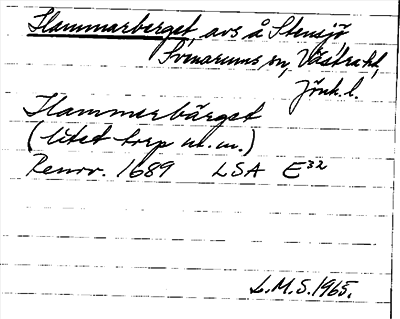 Hammarberget, avs å Stensjö
Svenarums sn, Västra hd,
Jönk. l.
Hammerbärget
(litet torp m.m.)
Renov. 1689 LSA E³²
L.M.S. 1965.